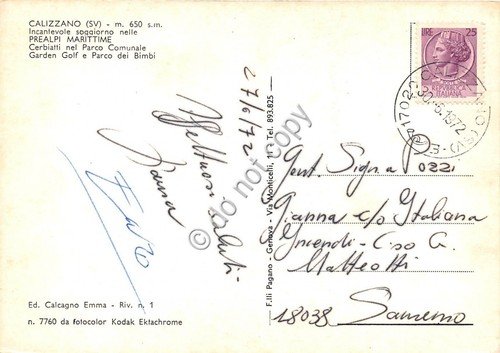 CALIZZANO (SV) - m. 650 s.m.
Incantevole soggiorno nelle
PREALPI MARITTIME
Cerbiatti nel Parco Comunale
Garden Golf e Parco dei Bimbi
LIRE 25
ITALIANA
17020
30.6.1972
(SV)
27/6/72
Affettuosi saluti
© do not copy
F.lli Pagano - Genova - Via Monticelli, 11 - Tel. 893.825
Gent. Signa Pozzi
Gianna c/o Italiana
Incendi - C.so G.
Matteotti
18038 Sanremo
Ed. Calcagno Emma - Riv. n. 1
n. 7760 da fotocolor Kodak Ektachrome